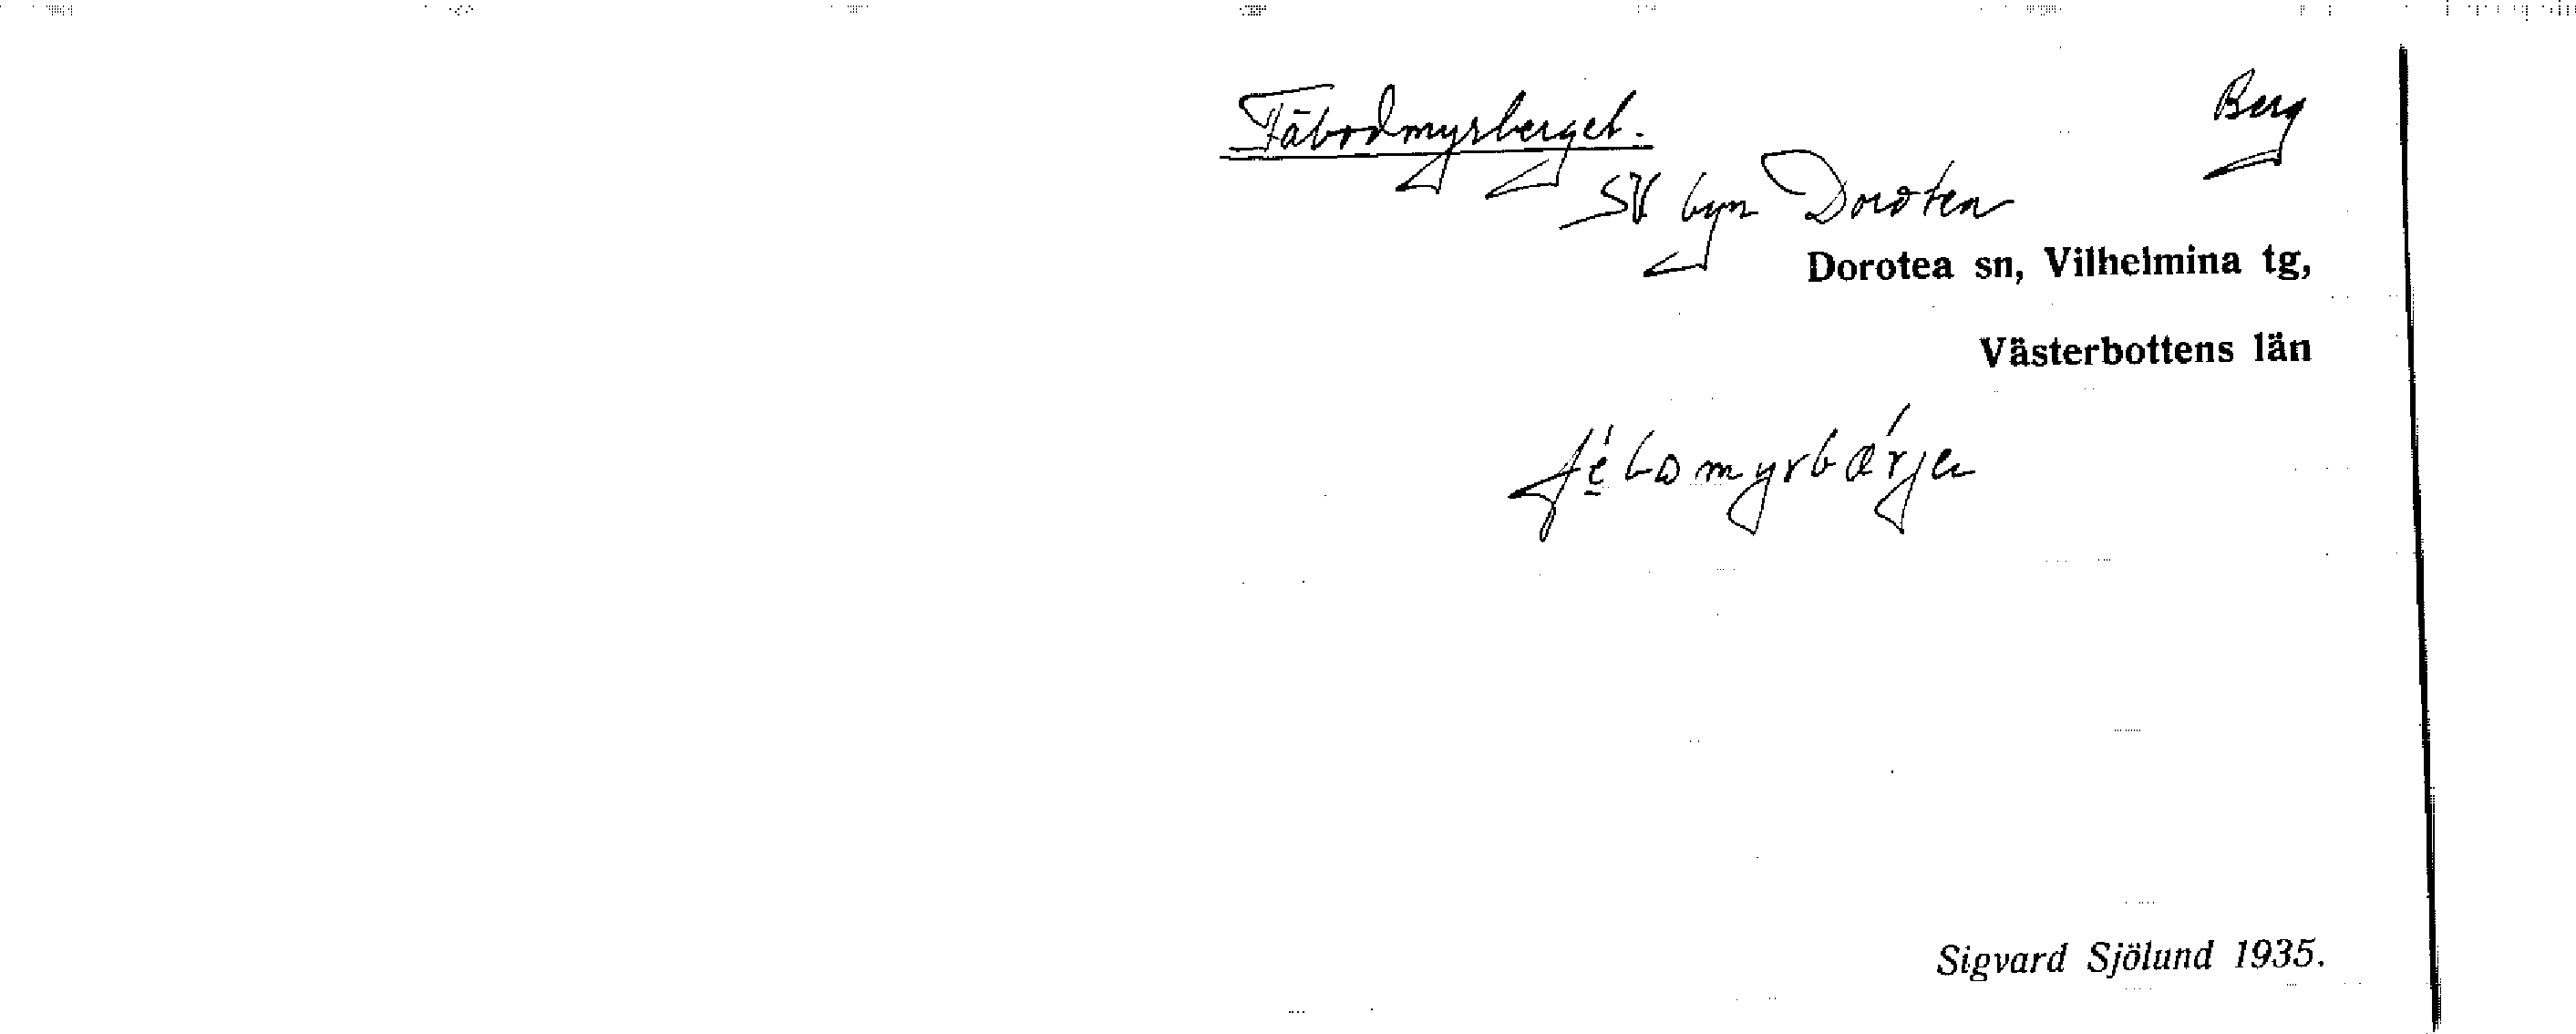 Fäbodmyrberget.
Berg
SV byn Dorotea
Dorotea sn, Vilhelmina tg,
Västerbottens län
fé̱bωmyrbǽrjen
Sigvard Sjölund 1935.